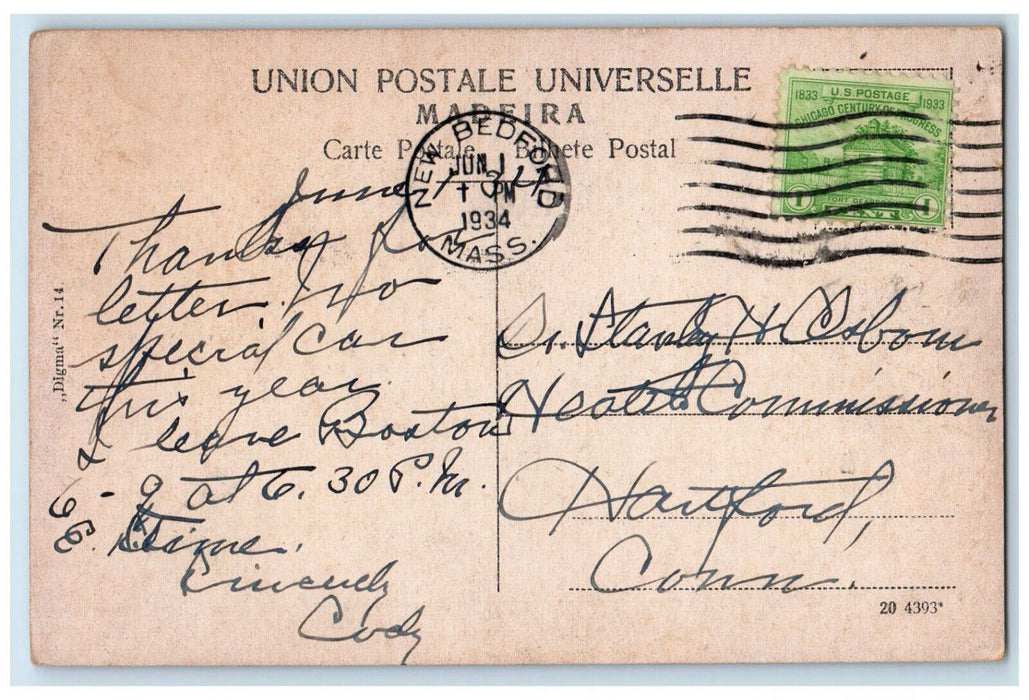 UNION POSTALE UNIVERSELLE
MADEIRA
Carte Postale Bilhete Postal
1833 U.S. POSTAGE 1933
CHICAGO CENTURY OF PROGRESS
FORT DEARBORN
1 CENT 1
NEW BEDFORD
JUN 1
1 PM
1934
MASS.
June 1 34
Thanks for
letter. No
special car
this year.
I leave Boston
- 9 at 6.30 P.M.
Time.
Sincerely
Cody
Dr. Stanley H Osborn
Health Commissioner
Hartford,
Conn.
„Digma“ Nr. 14
20 4393*